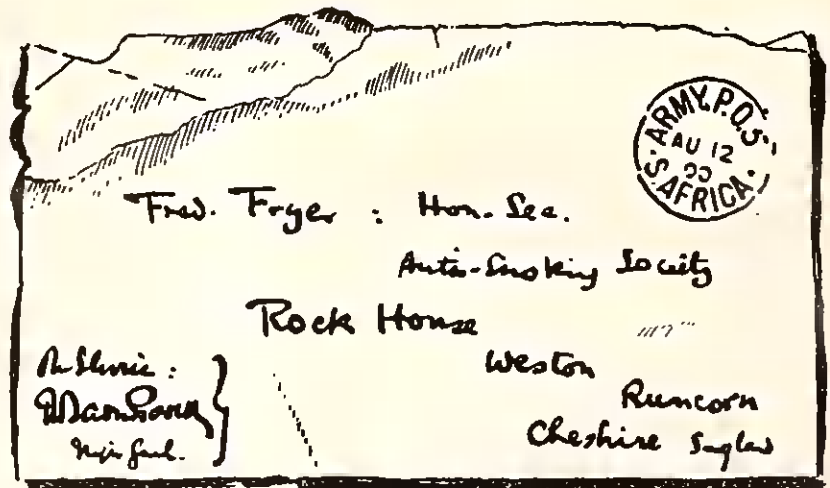 ARMY.P.O.5
AU 12
00
S.AFRICA.
Fred. Fryer : Hon. Sec.
Anti-Smoking Society
Rock House
Weston
Runcorn
Cheshire England
On Service :
Maj. Genl.